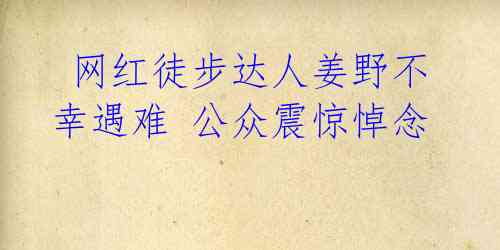 网红徒步达人姜野不
幸遇难 公众震惊悼念